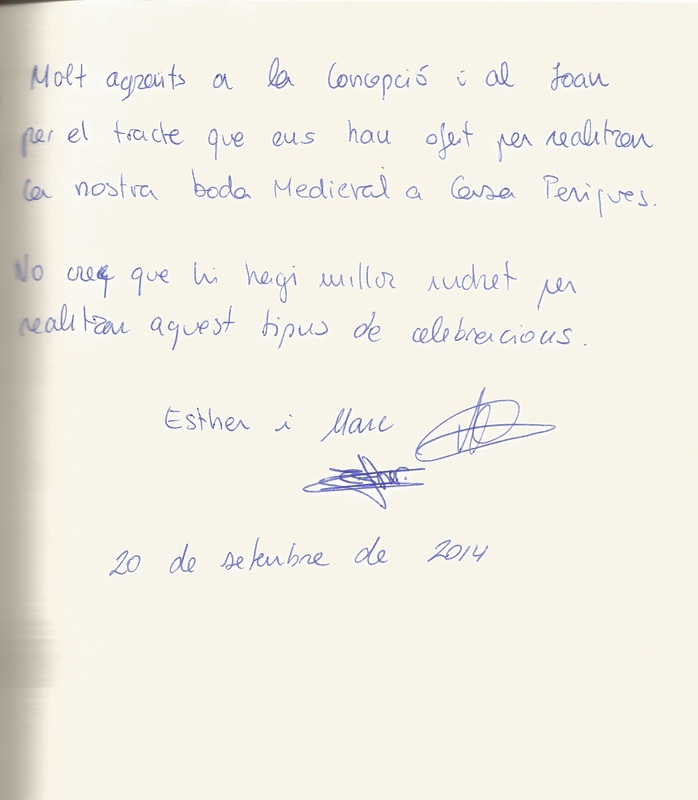 Molt agraïts a la Concepció i al Joan
per el tracte que ens han ofert per realitzar
la nostra boda Medieval a Casa Perigues.
No crec que hi hagi millor indret per
realitzar aquest tipus de celebracions.
Esther i Marc
20 de setembre de 2014